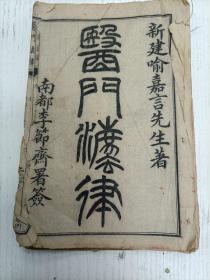 新建喻嘉言先生著
醫門法律
南都李節齋署簽